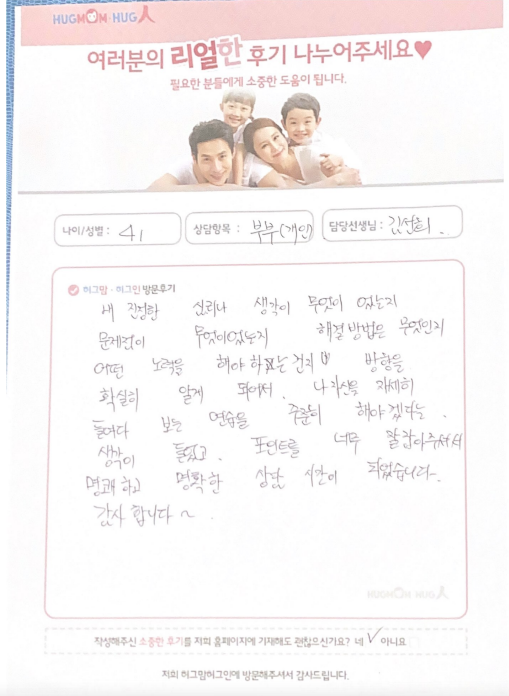 HUGMOM·HUG人
여러분의 리얼한 후기 나누어주세요♥
필요한 분들에게 소중한 도움이 됩니다.
나이/성별 : 41
상담항목 : 부부(개인)
담당선생님 : 김선희.
허그맘·허그인 방문후기
내 진정한 심리나 생각이 무엇이 었는지
문제점이 무엇이었는지 해결 방법은 무엇인지
어떤 노력을 해야 하는 건지 방향을
확실히 알게 되어서. 나 자신을 자세히
들여다 보는 연습을 꾸준히 해야 겠다는
생각이 들었고. 포인트를 너무 잘 잡아주셔서
명쾌하고 명확한 상담 시간이 되었습니다~
감사 합니다 ~
HUGMOM HUG人
작성해주신 소중한 후기를 저희 홈페이지에 기재해도 괜찮으신가요? 네 ✓ 아니요
저희 허그맘허그인에 방문해주셔서 감사드립니다.